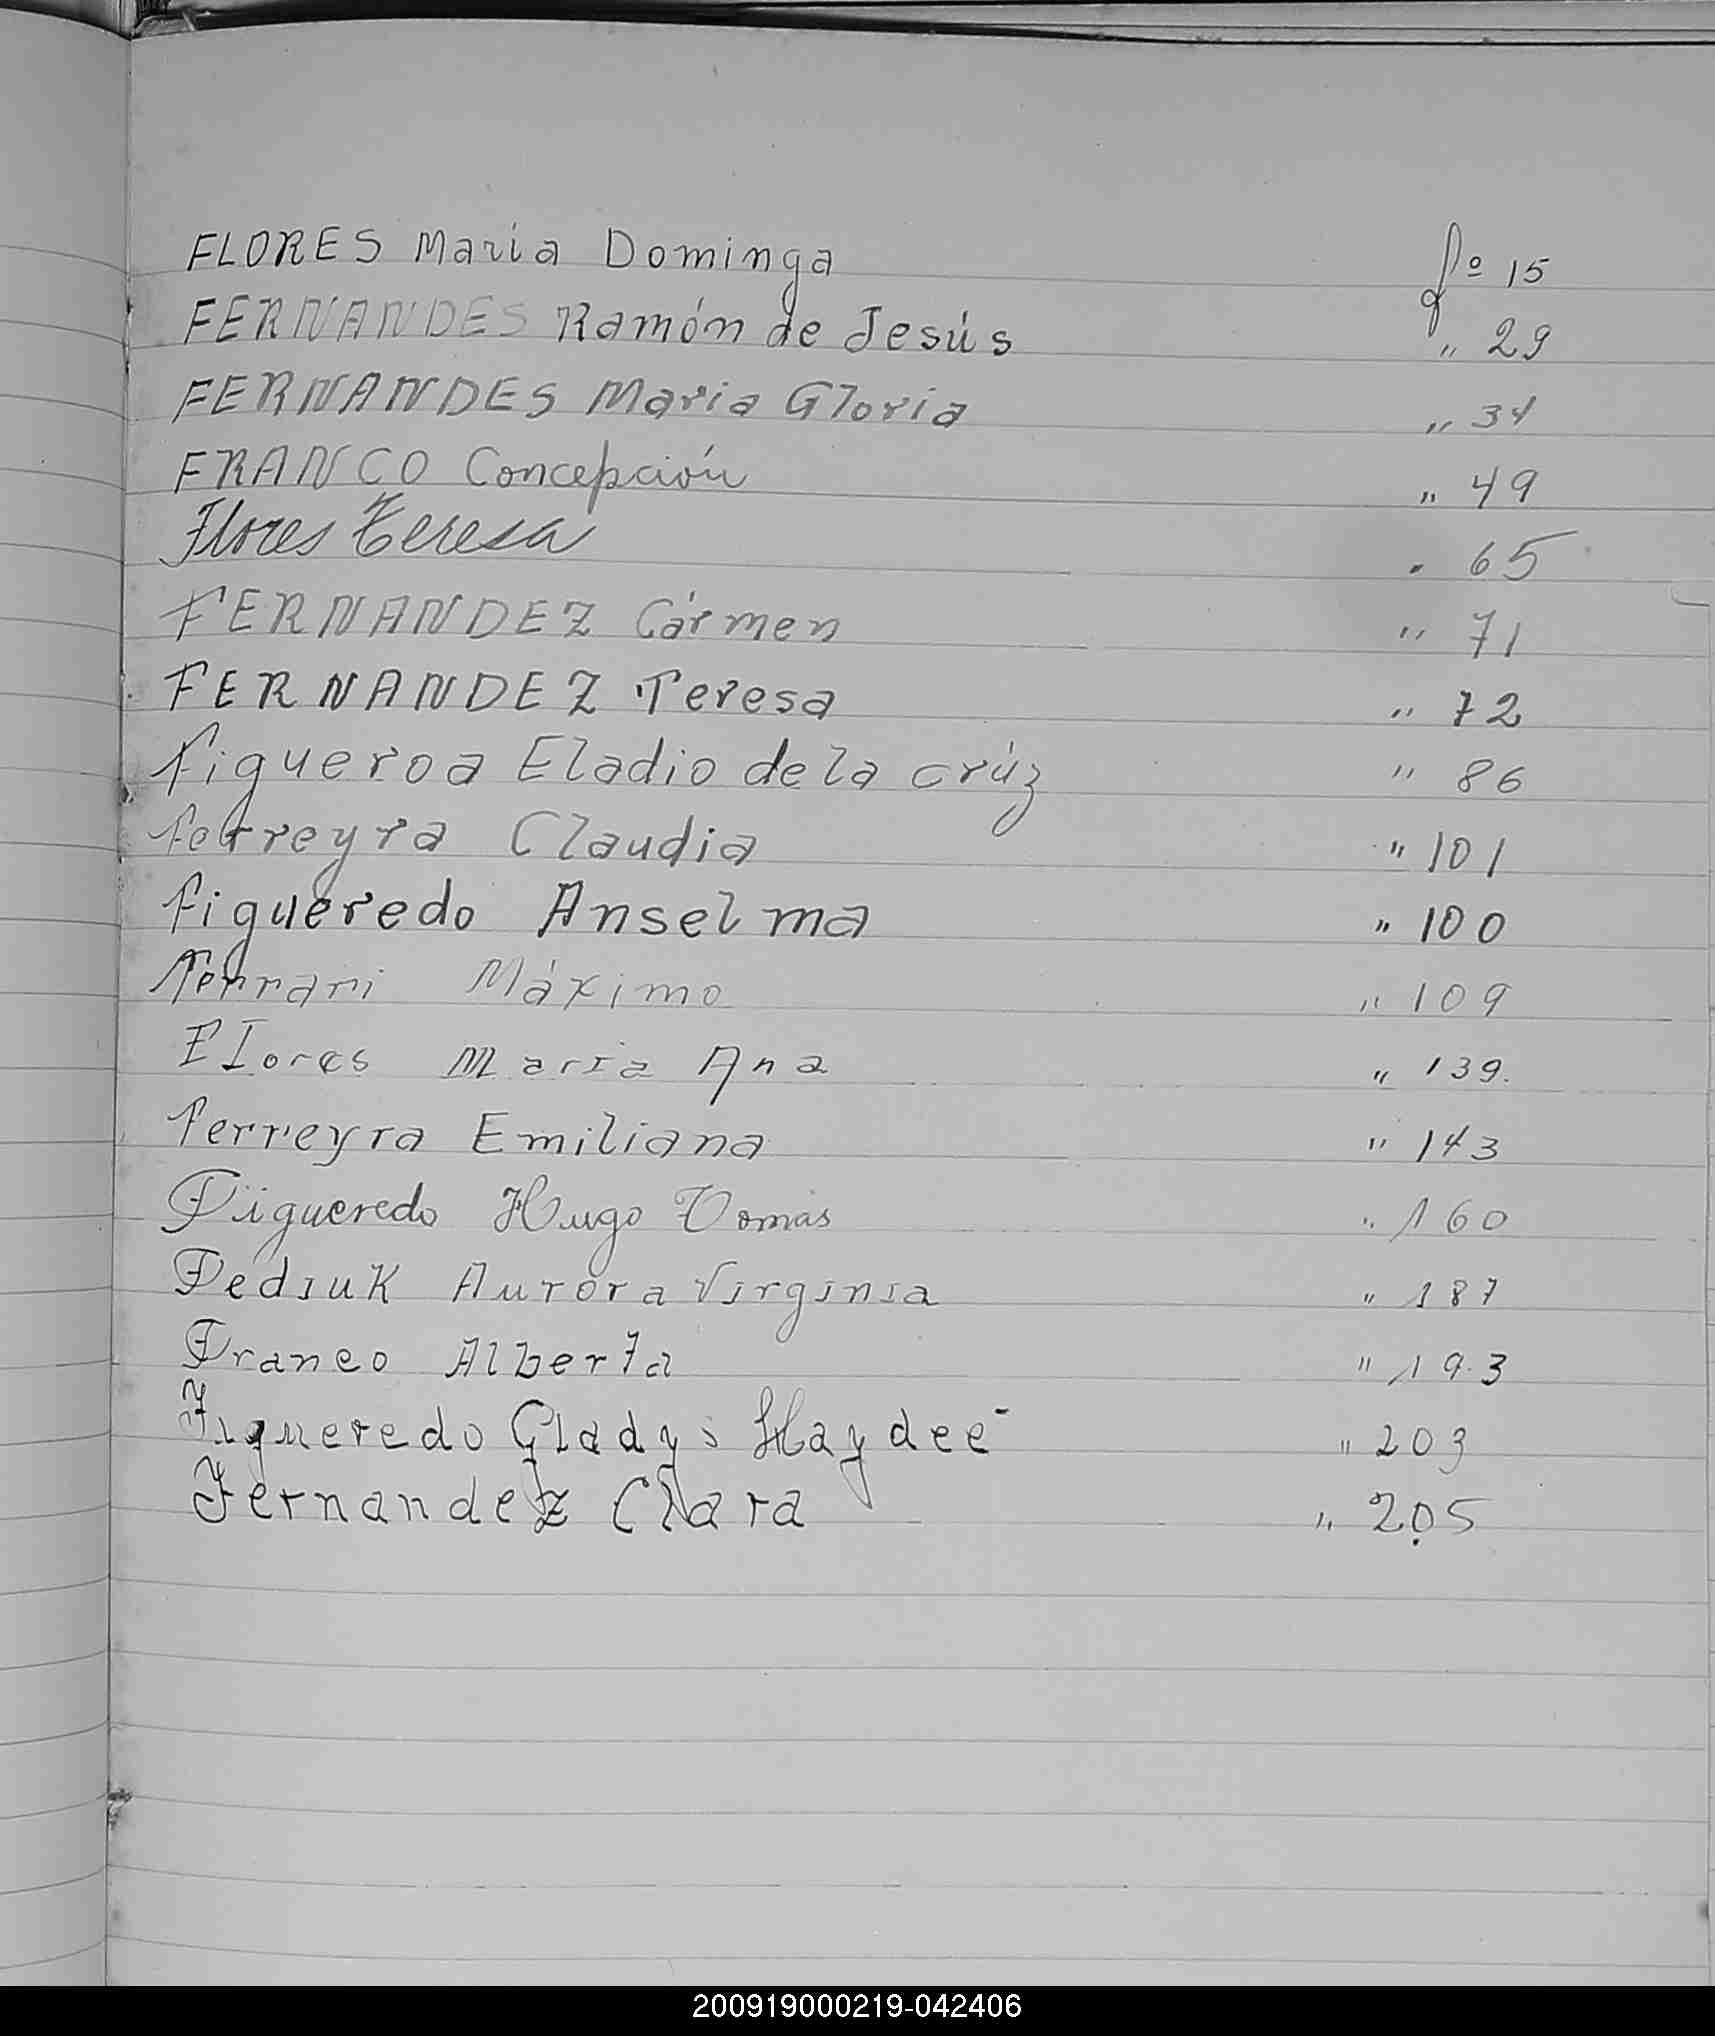 FLORES Maria Dominga fº 15
FERNANDES Ramón de Jesús " 29
FERNANDES Maria Gloria " 34
FRANCO Concepción " 49
Flores Teresa " 65
FERNANDEZ Cármen " 71
FERNANDEZ Teresa " 72
Figueroa Eladio de la crúz " 86
Ferreyra Claudia " 101
Figueredo Anselma " 100
Ferrari Máximo " 109
Flores Maria Ana " 139.
Ferreyra Emiliana " 143
Figueredo Hugo Tomás " 160
Fediuk Aurora Virginia " 187
Franco Alberta " 193
Figueredo Gladys Haydeé " 203
Fernandez Clara " 205
200919000219-042406